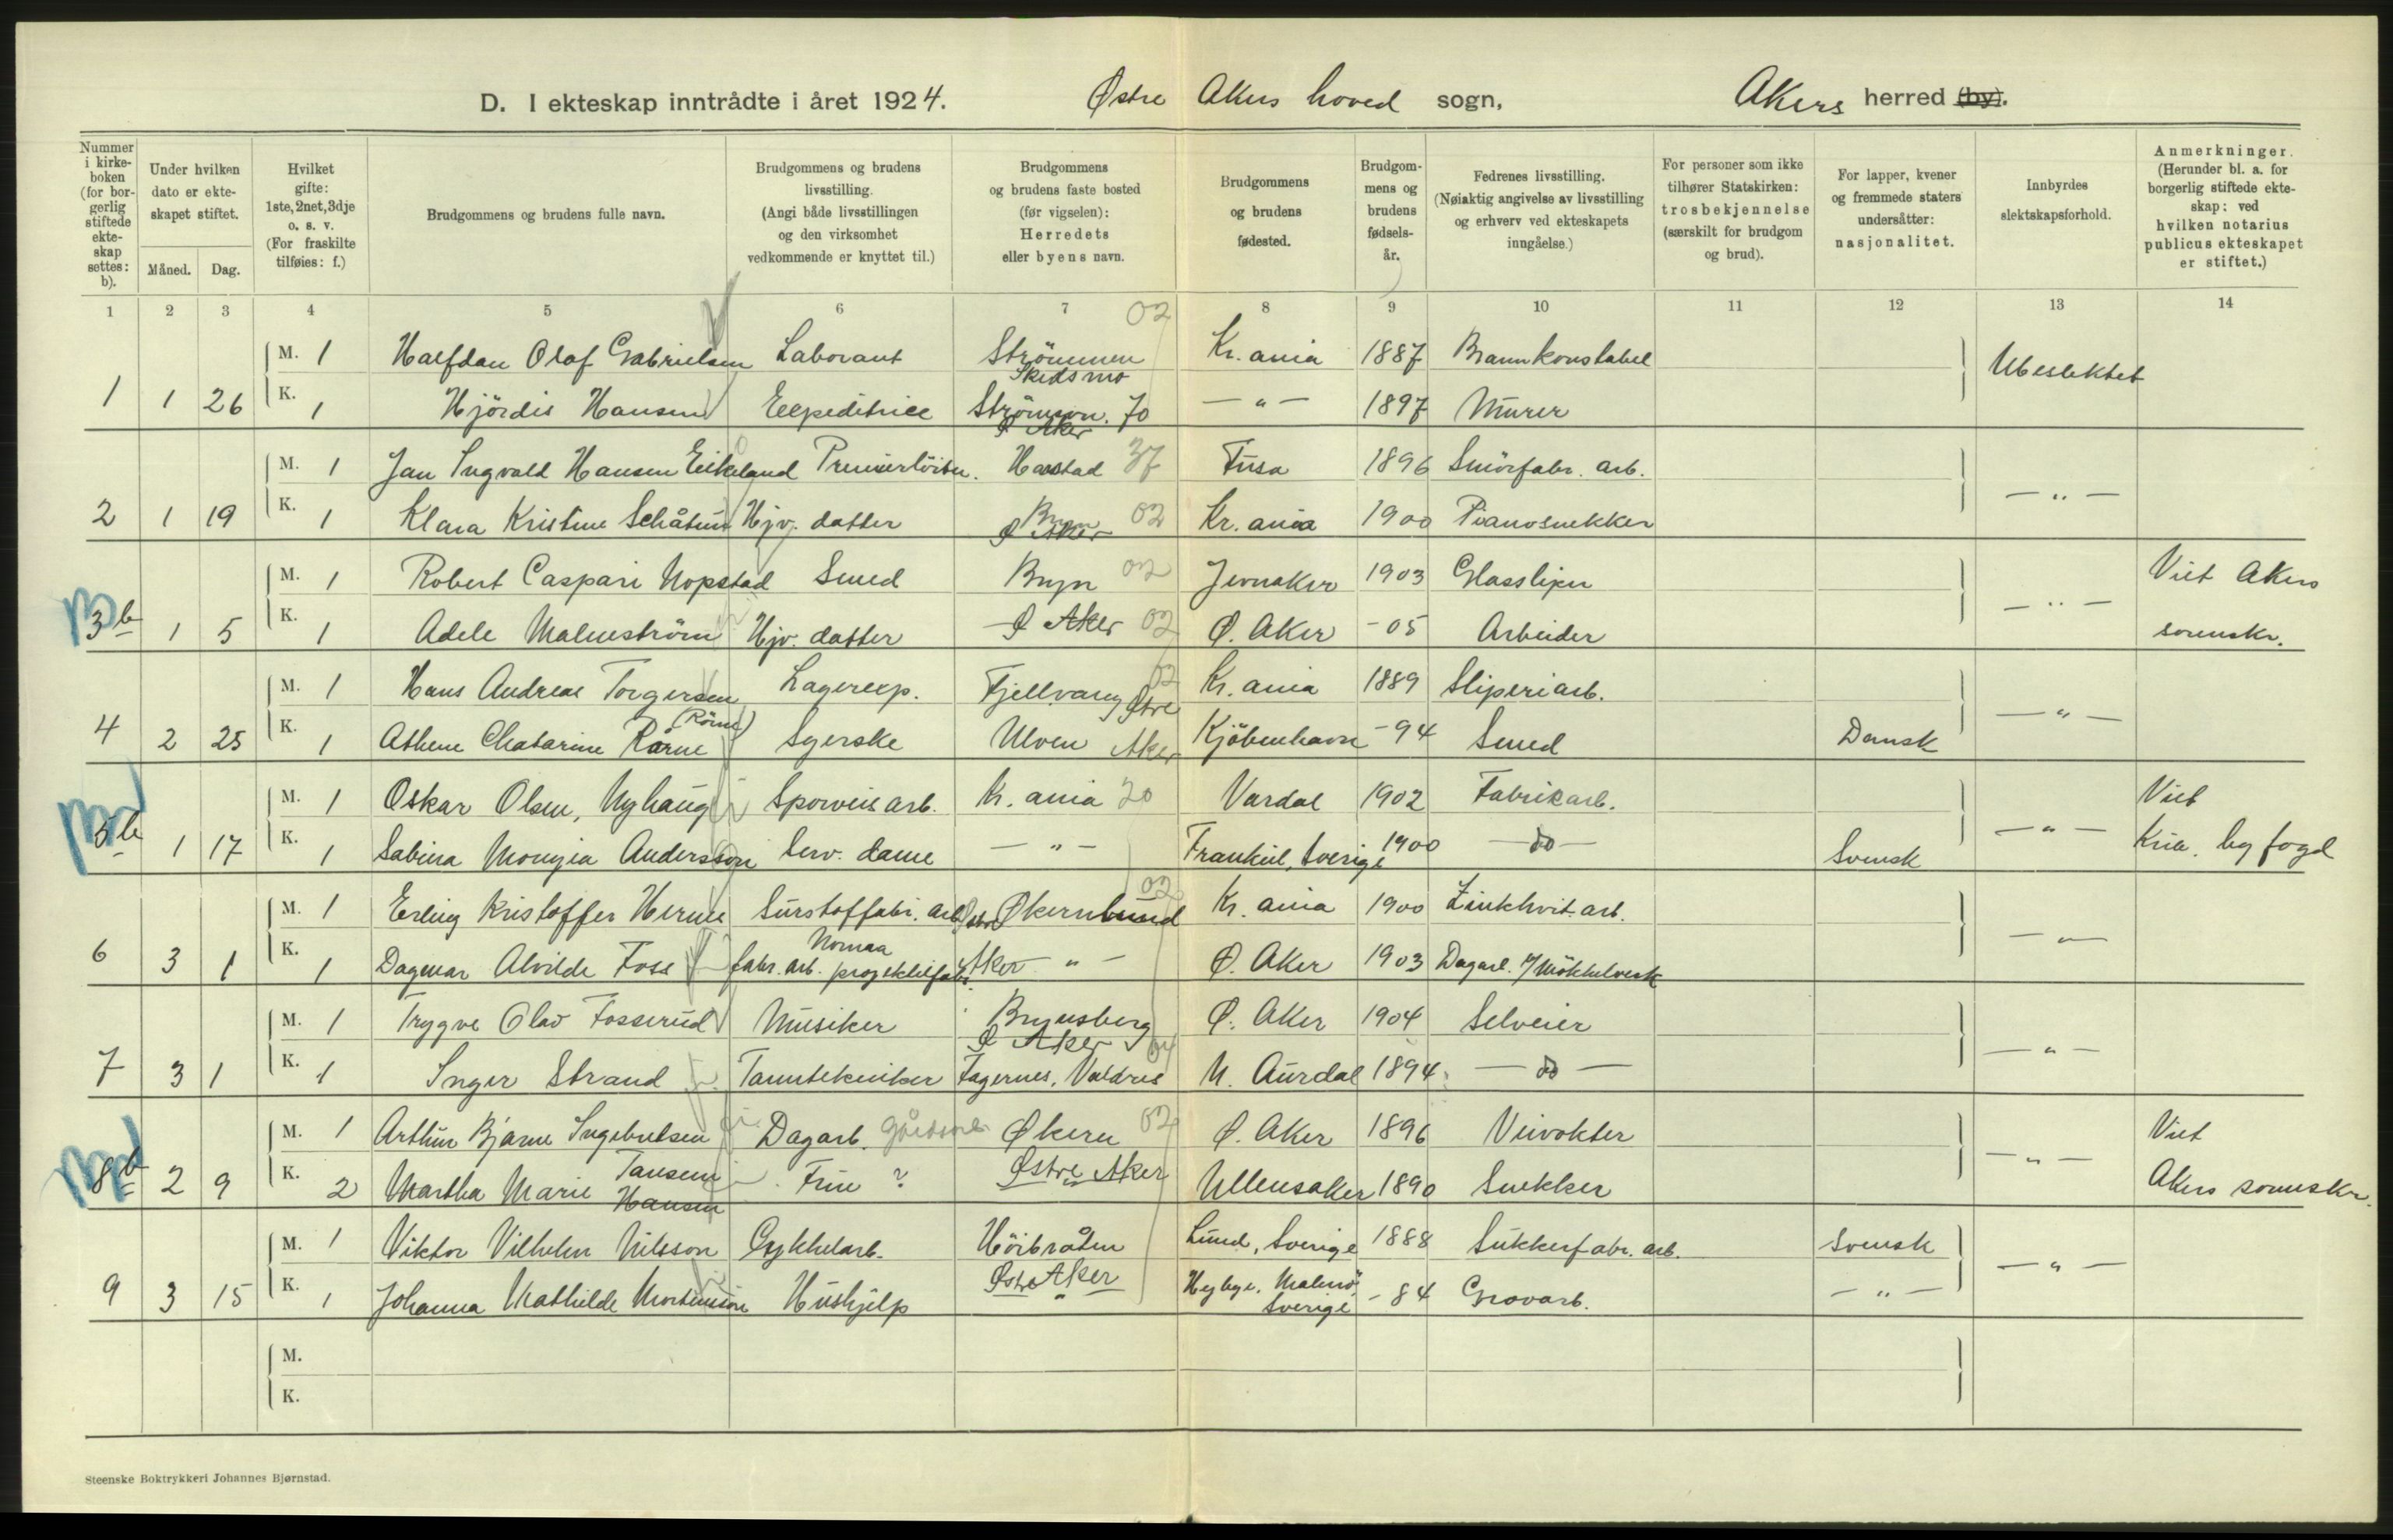 D. I ekteskap inntrådte i året 1924. Østre Akers hoved sogn, Akers herred (by).
Nummer i kirkeboken (for borgerlig stiftede ekteskap settes: b).
Under hvilken dato er ekteskapet stiftet.
Måned. Dag.
Hvilket gifte: 1ste, 2net, 3dje o. s. v. (For fraskilte tilføies: f.)
Brudgommens og brudens fulle navn.
Brudgommens og brudens livsstilling. (Angi både livsstillingen og den virksomhet vedkommende er knyttet til.)
Brudgommens og brudens faste bosted (før vigselen): Herredets eller byens navn.
Brudgommens og brudens fødested.
Brudgommens og brudens fødselsår.
Fedrenes livsstilling. (Nøiaktig angivelse av livsstilling og erhverv ved ekteskapets inngåelse.)
For personer som ikke tilhører Statskirken: trosbekjennelse (særskilt for brudgom og brud).
For lapper, kvener og fremmede staters undersåtter: nasjonalitet.
Innbyrdes slektskapsforhold.
Anmerkninger. (Herunder bl. a. for borgerlig stiftede ekteskap: ved hvilken notarius publicus ekteskapet er stiftet.)
1 2 3 4 5 6 7 8 9 10 11 12 13 14
02
M. 1 Halfdan Olaf Gabrielsen Laborant Strömmen Skedsmo Kr.ania 1887 Brannkonstabel Ubeslektet
1 1 26 K. 1 Hjördis Hansen Expeditrice Strömsvn. 70 Ø Aker — " — 1897 Murer
M. 1 Jan Ingvald Hansen Eikeland Premierlöitn. Harstad 37 Fusa 1896 Smörfabr. arb. — " —
2 1 19 K. 1 Klara Kristine Schåtun Hjv. datter Bryn Ø Aker 02 Kr.ania 1900 Pianosnekker
M. 1 Robert Caspari Nopstad Smed Bryn 02 Jevnaker 1903 Glassliper — " — Viet Akers
3b 1 5 K. 1 Adele Malmeström Hjv. datter Ø Aker 02 Ø. Aker -05 Arbeider sorenskr.
M. 1 Hans Andreas Torgersen Lagerexp. Fjellvang Østre 02 Kr.ania 1889 Sliperiarb. — " —
4 2 25 K. 1 Athene Chatarine Rårne (Rörne) Syerske Ulven Aker Kjöbenhavn -94 Smed Dansk
M. 1 Oskar Olsen, Nyhaug Sporveisarb. Kr.ania 20 Vardal 1902 Fabrikarb. — " — Viet
5b 1 17 K. 1 Sabina Andersson Serv. dame — " — Sverige 1900 — do — Svensk by fogd
M. 1 Erling Kristoffer Hernes Surstoffabr. arb. Østre Økernbund 02 Kr.ania 1900 Zinkhvit.arb. — " —
6 3 1 K. 1 Dagmar Alvilde Foss fabr. arb. projektilfabr. Aker — " — Ø. Aker 1903 Dagarb.
M. 1 Trygve Olav Fosserud Musiker Brynsberg Ø Aker Ø. Aker 1904 Selveier — " —
7 3 1 K. 1 Inger Strand Tanntekniker Fagernes, Valdres N. Aurdal 1894 — do —
M. 1 Arthur Bjarne Ingebretsen Dagarb. gårdsarb. Økern 02 Ø. Aker 1896 Veivokter — " — Viet
8b 2 9 K. 2 Martha Marie Hansen Frue ? Østre Aker Ullensaker 1890 Snekker Akers sorenskr.
M. 1 Viktor Vilhelm Nilsson Cykkelarb. Höibråten Lund, Sverige 1888 Sukkerfabr. arb. Svensk — " —
9 3 15 K. 1 Johanna Mathilde Hushjelp Østre Aker " Malmö, Sverige -84 Grovarb. — " —
M.
K.
Steenske Boktrykkeri Johannes Bjørnstad.